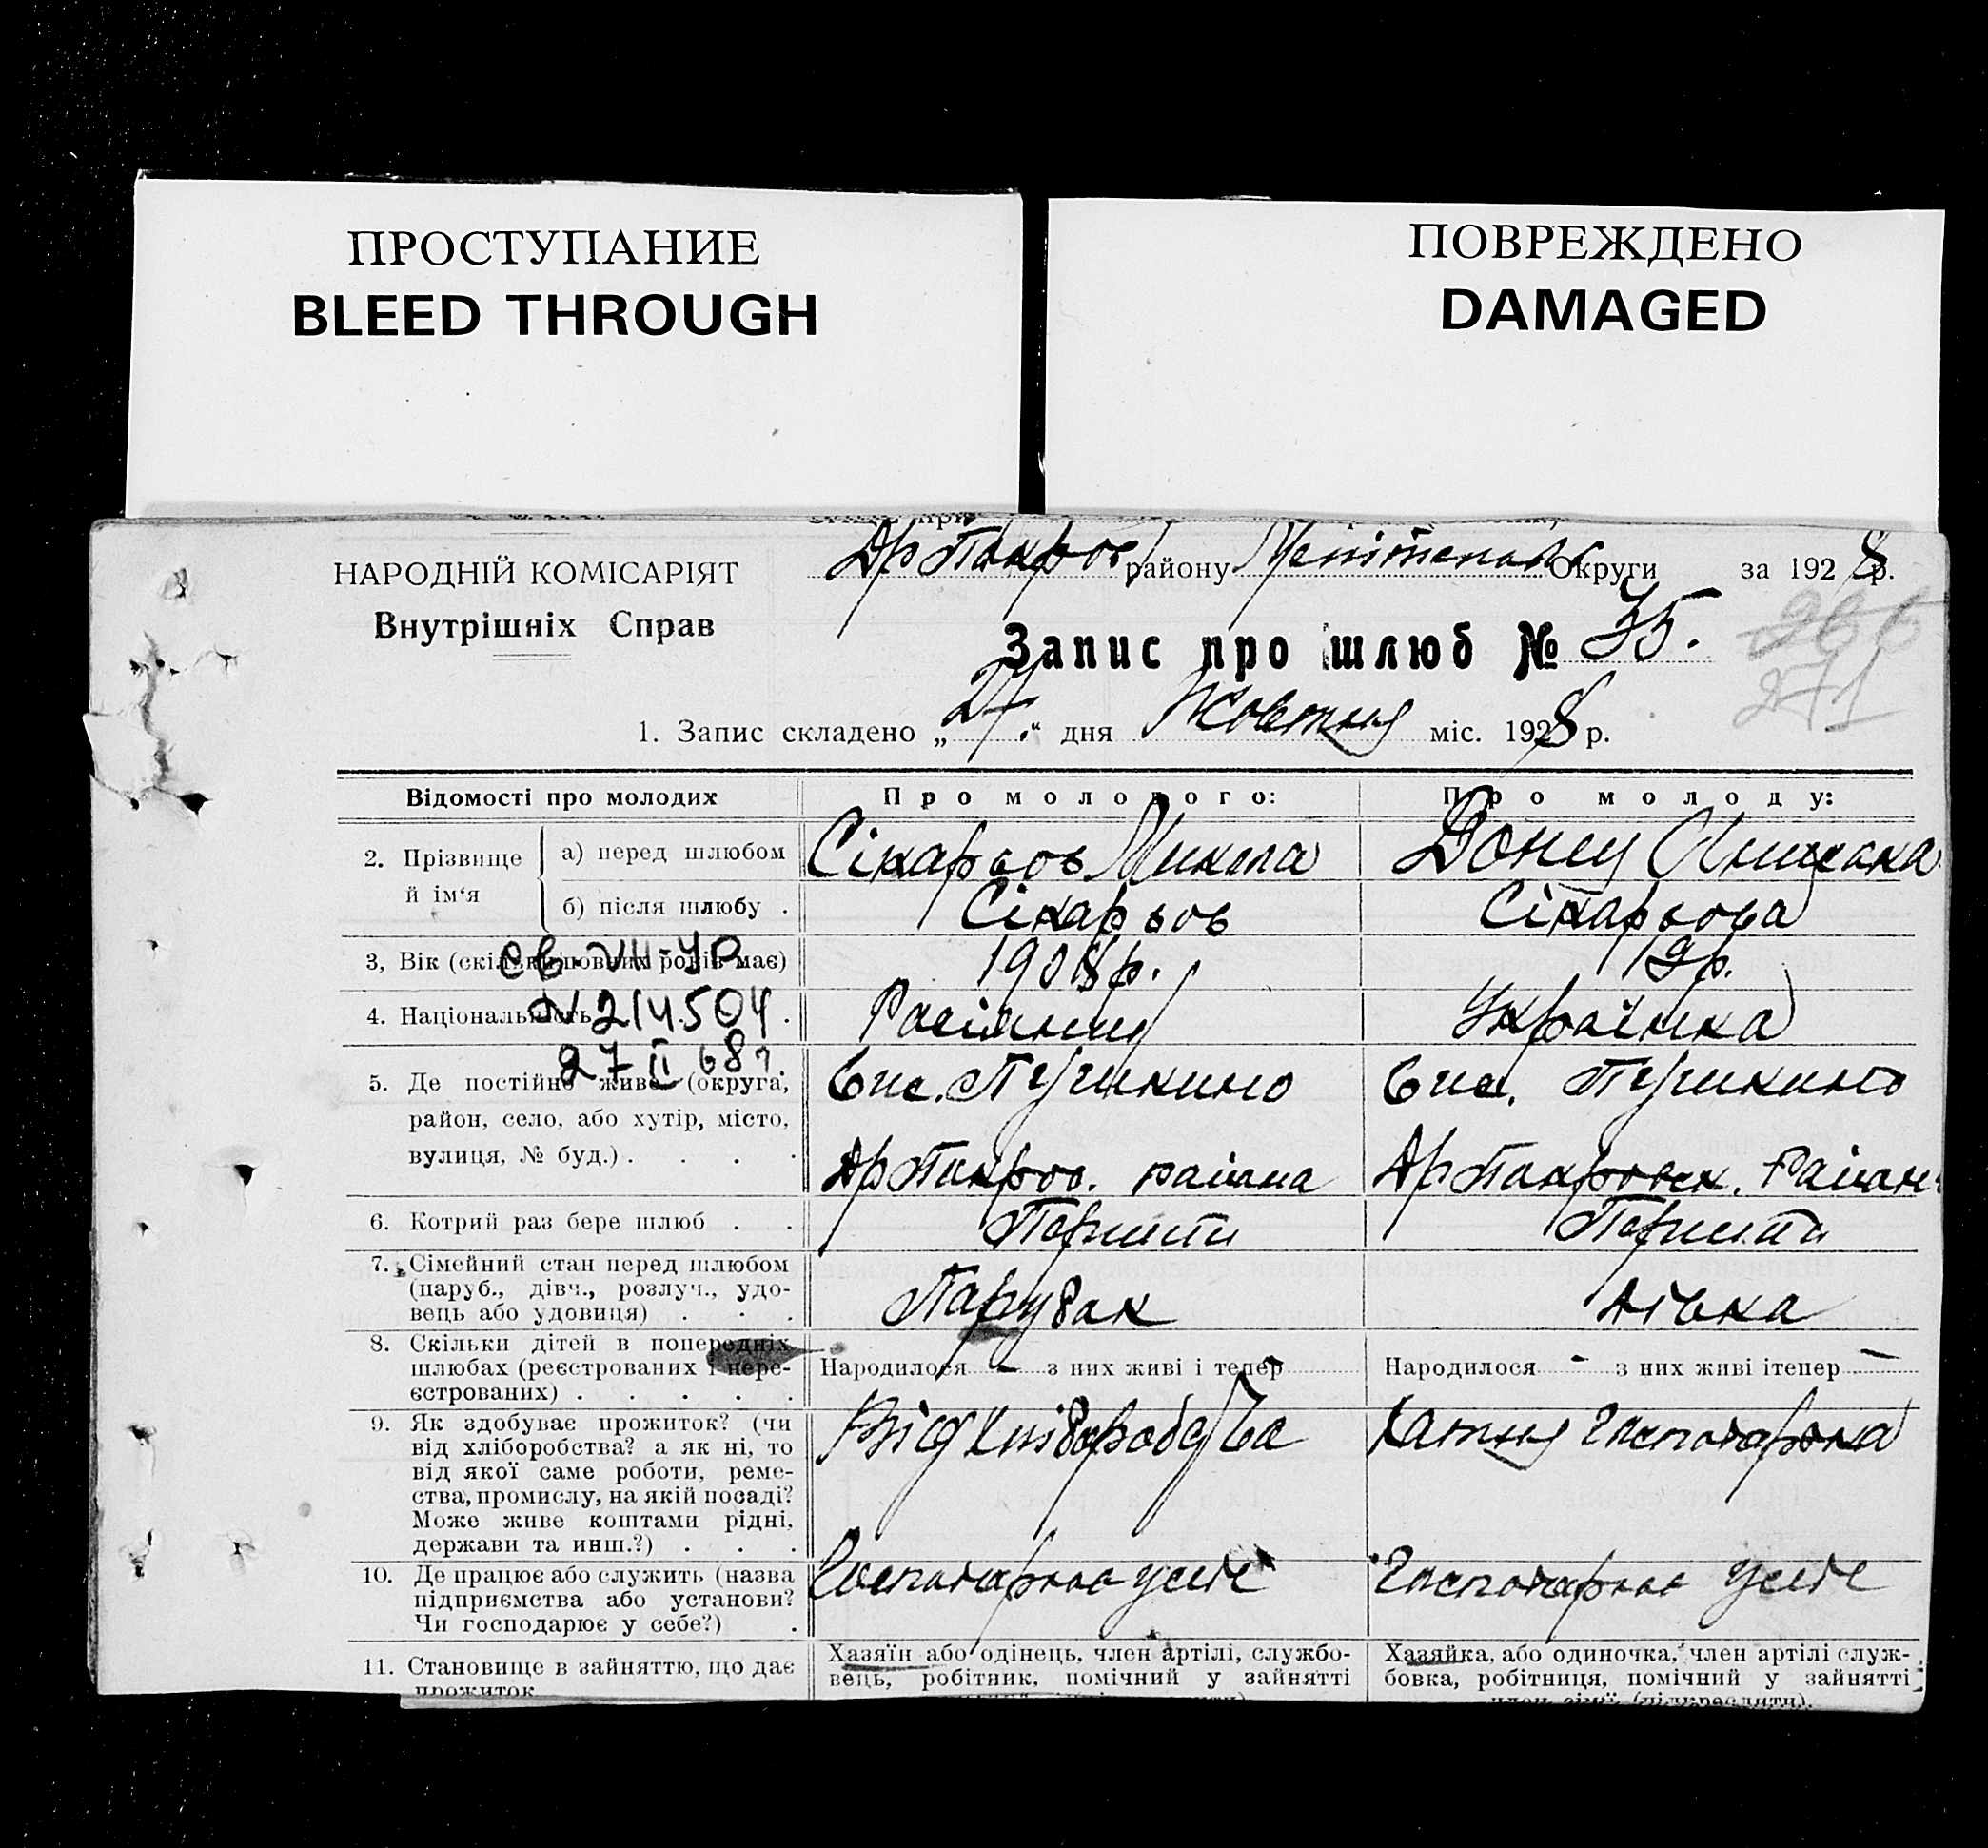 ПРОСТУПАНИЕ
BLEED THROUGH
ПОВРЕЖДЕНО
DAMAGED
НАРОДНІЙ КОМІСАРІЯТ
Внутрішніх Справ
району Округи за 1928 р.
Запис про шлюб № 35.
266
271
1. Запис складено „27.“ дня Жовтня міс. 1928 р.
Відомості про молодих
Про молодого:
Про молоду:
2. Прізвище й ім‘я
а) перед шлюбом
Сікарьов Микола
Донец
б) після шлюбу .
Сікарьов
Сікарьова
3, Вік (скільки повних років має)
1908 р.
19 р.
св. УН-УР
4. Національність
№ 214504
Росіянин
Українка
27 II 68 г.
5. Де постійно живе (округа,
район, село, або хутір, місто,
вулиця, № буд.) . . . .
Вис. Пушкино
Вис. Пушкино
6. Котрий раз бере шлюб . .
Перший
Перший
7. Сімейний стан перед шлюбом
(паруб., дівч., розлуч., удо-
вець або удовиця) . . .
Парубак
Дівка
8. Скільки дітей в попередніх
шлюбах (реєстрованих і нере-
єстрованих) . . . . .
Народилося - з них живі і тепер -
Народилося - з них живі ітепер -
9. Як здобуває прожиток? (чи
від хліборобства? а як ні, то
від якої саме роботи, реме-
ства, промислу, на якій посаді?
Може живе коштами рідні,
держави та инш.?) . . .
Від
Хатня
10. Де працює або служить (назва
підприємства або установи?
Чи господарює у себе?) .
11. Становище в зайняттю, що дає
прожиток
Хазяїн або одінець, член артілі, службо-
вець, робітник, помічний у зайнятті
Хазяйка, або одиночка, член артілі служ-
бовка, робітниця, помічний у зайнятті
член сімї (підкреслити).